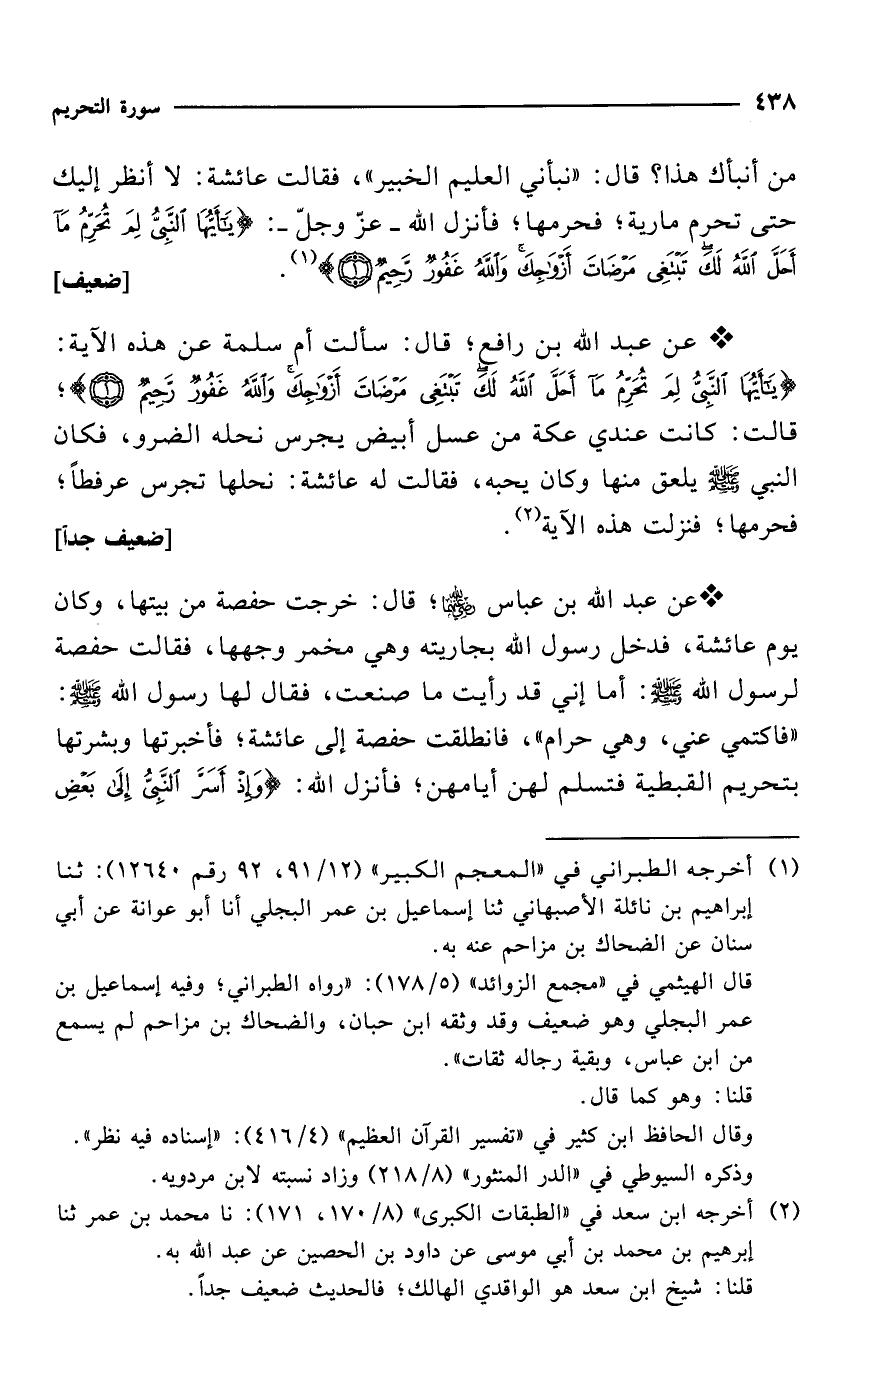 ٤٣٨ سورة التحريم
من أنبأك هذا؟ قال: «نبأني العليم الخبير»، فقالت عائشة: لا أنظر إليك
حتى تحرم مارية؛ فحرمها؛ فأنزل الله ـ عزّ وجلّ ـ: ﴿يَٰٓأَيُّهَا ٱلنَّبِيُّ لِمَ تُحَرِّمُ مَآ
أَحَلَّ ٱللَّهُ لَكَۖ تَبْتَغِى مَرْضَاتَ أَزْوَٰجِكَۚ وَٱللَّهُ غَفُورٌ رَّحِيمٌ ۝١﴾(١). [ضعيف]
❖ عن عبد الله بن رافع؛ قال: سألت أم سلمة عن هذه الآية:
﴿يَٰٓأَيُّهَا ٱلنَّبِيُّ لِمَ تُحَرِّمُ مَآ أَحَلَّ ٱللَّهُ لَكَۖ تَبْتَغِى مَرْضَاتَ أَزْوَٰجِكَۚ وَٱللَّهُ غَفُورٌ رَّحِيمٌ ۝١﴾؛
قالت: كانت عندي عكة من عسل أبيض يجرس نحله الضرو، فكان
النبي ﷺ يلعق منها وكان يحبه، فقالت له عائشة: نحلها تجرس عرفطاً؛
فحرمها؛ فنزلت هذه الآية(٢). [ضعيف جداً]
❖عن عبد الله بن عباس رضي الله عنهما؛ قال: خرجت حفصة من بيتها، وكان
يوم عائشة، فدخل رسول الله بجاريته وهي مخمر وجهها، فقالت حفصة
لرسول الله ﷺ: أما إني قد رأيت ما صنعت، فقال لها رسول الله ﷺ:
«فاكتمي عني، وهي حرام»، فانطلقت حفصة إلى عائشة؛ فأخبرتها وبشرتها
بتحريم القبطية فتسلم لهن أيامهن؛ فأنزل الله: ﴿وَإِذْ أَسَرَّ ٱلنَّبِيُّ إِلَىٰ بَعْضِ
(١) أخرجه الطبراني في «المعجم الكبير» (٩١/١٢، ٩٢ رقم ١٢٦٤٠): ثنا
إبراهيم بن نائلة الأصبهاني ثنا إسماعيل بن عمر البجلي أنا أبو عوانة عن أبي
سنان عن الضحاك بن مزاحم عنه به.
قال الهيثمي في «مجمع الزوائد» (١٧٨/٥): «رواه الطبراني؛ وفيه إسماعيل بن
عمر البجلي وهو ضعيف وقد وثقه ابن حبان، والضحاك بن مزاحم لم يسمع
من ابن عباس، وبقية رجاله ثقات».
قلنا: وهو كما قال.
وقال الحافظ ابن كثير في «تفسير القرآن العظيم» (٤١٦/٤): «إسناده فيه نظر».
وذكره السيوطي في «الدر المنثور» (٢١٨/٨) وزاد نسبته لابن مردويه.
(٢) أخرجه ابن سعد في «الطبقات الكبرى» (١٧٠/٨، ١٧١): نا محمد بن عمر ثنا
إبرهيم بن محمد بن أبي موسى عن داود بن الحصين عن عبد الله به.
قلنا: شيخ ابن سعد هو الواقدي الهالك؛ فالحديث ضعيف جداً.